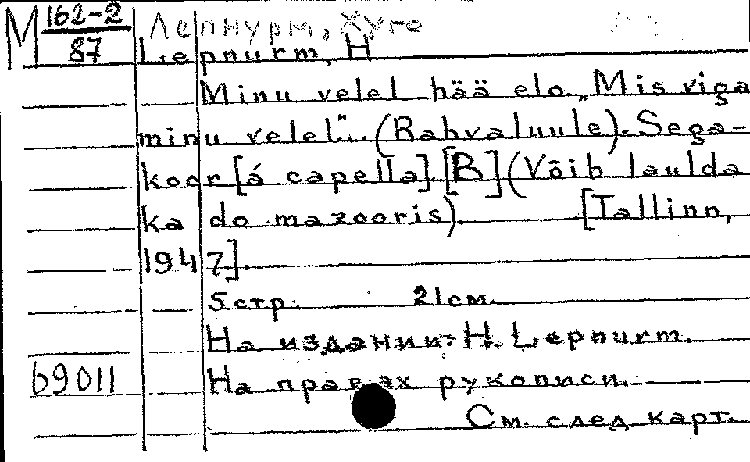 М 162-2 Лепнурм, Хуго
87 Lepnurm, H
Minu velel hää elo „Mis viga
minu velel". (Rahvaluule). Sega-
koor [á capella] [B] (Võib laulda
ka do mazooris) [Tallinn,
1947].
5 стр. 21 см.
На издании: H. Lepnurm.
69011 На правах рукописи.
См. след карт.